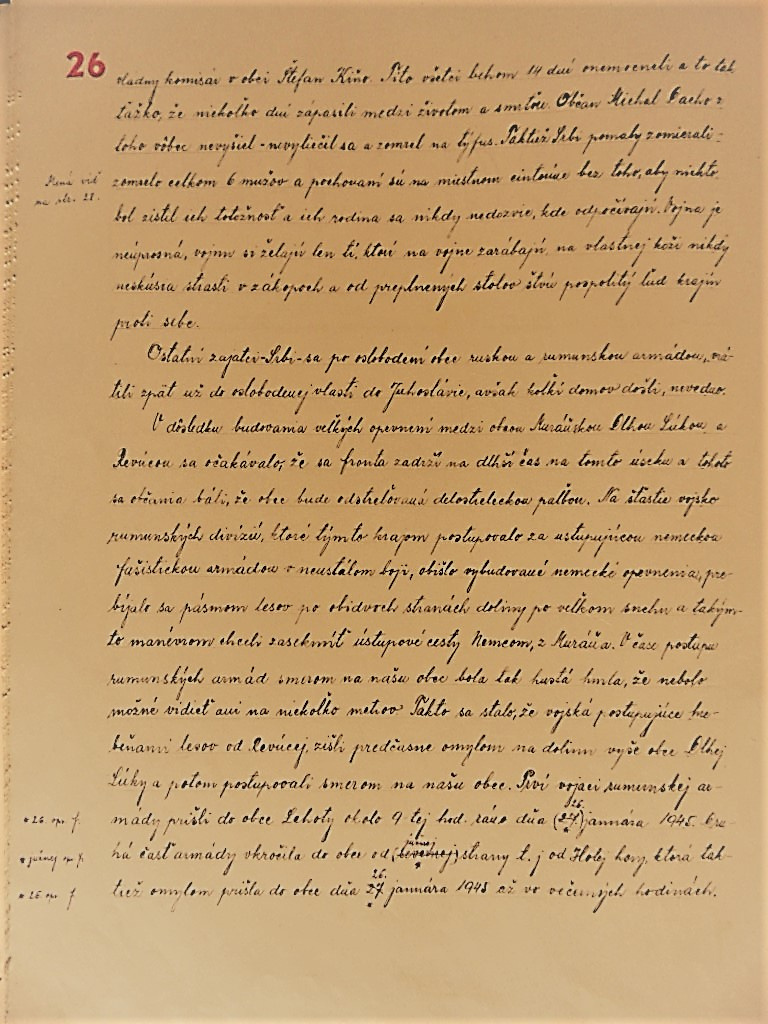 26
vládny komisár v obci Štefan Kiňo. Títo všetci behom 14 dní onemocneli a to tak
ťažko, že niekoľko dní zápasili medzi životom a smrťou. Občan Michal Cacho z
toho vôbec nevyšiel - nevyliečil sa a zomrel na týfus. Taktiež Srbi pomaly zomierali -
Mená viď
na str. 28.
zomrelo celkom 6 mužov a pochovaní sú na miestnom cintoríne bez toho, aby niekto
bol zistil ich totožnosť a ich rodina sa nikdy nedozvie, kde odpočívajú. Vojna je
neúprosná, vojnu si želajú len tí, ktorí na vojne zarábajú, na vlastnej koži nikdy
neskúsia strasti v zákopoch a od preplnených stolov štvú pospolitý ľud krajín
proti sebe.
Ostatní zajatci-Srbi-sa po oslobodení obce ruskou a rumunskou armádou, vrá-
tili zpäť už do oslobodenej vlasti do Juhoslávie, avšak koľkí domov došli, nevedno.
V dôsledku budovania veľkých opevnení medzi obcou Muráňskou Dlhou Lúkou a
Revúcou sa očakávalo, že sa fronta zadrží na dlhší čas na tomto úseku a tohoto
sa občania báli, že obec bude odstreľovaná delostreleckou paľbou. Na šťastie vojsko
rumunských divízií, ktoré týmto krajom postupovalo za ustupujúcou nemeckou
fašistickou armádou v neustálom boji, obišlo vybudované nemecké opevnenia, pre-
bíjalo sa pásmom lesov po obidvoch stranách doliny po veľkom snehu a takým-
to manevrom chceli zaseknúť ústupové cesty Nemcom, z Muráňa. V čase postupu
rumunských armád smerom na našu obec bola tak hustá hmla, že nebolo
možné vidieť ani na niekoľko metrov. Takto sa stalo, že vojská postupujúce hre-
beňami lesov od Revúcej, zišli predčasne omylom na dolinu vyše obce Dlhej
Lúky a potom postupovali smerom na našu obec. Prví vojaci rumunskej ar-
* 26. opr. f.
26.
mády prišli do obce Lehoty okolo 9-tej hod. ráno dňa (27.) januára 1945. Dru-
* južnej opr. f.
južnej
há časť armády vkročila do obce od (severnej) strany t. j od Holej hory, ktorá tak-
* 26. opr. f
26.
tiež omylom prišla do obce dňa 27. januára 1945 až vo večerných hodinách.